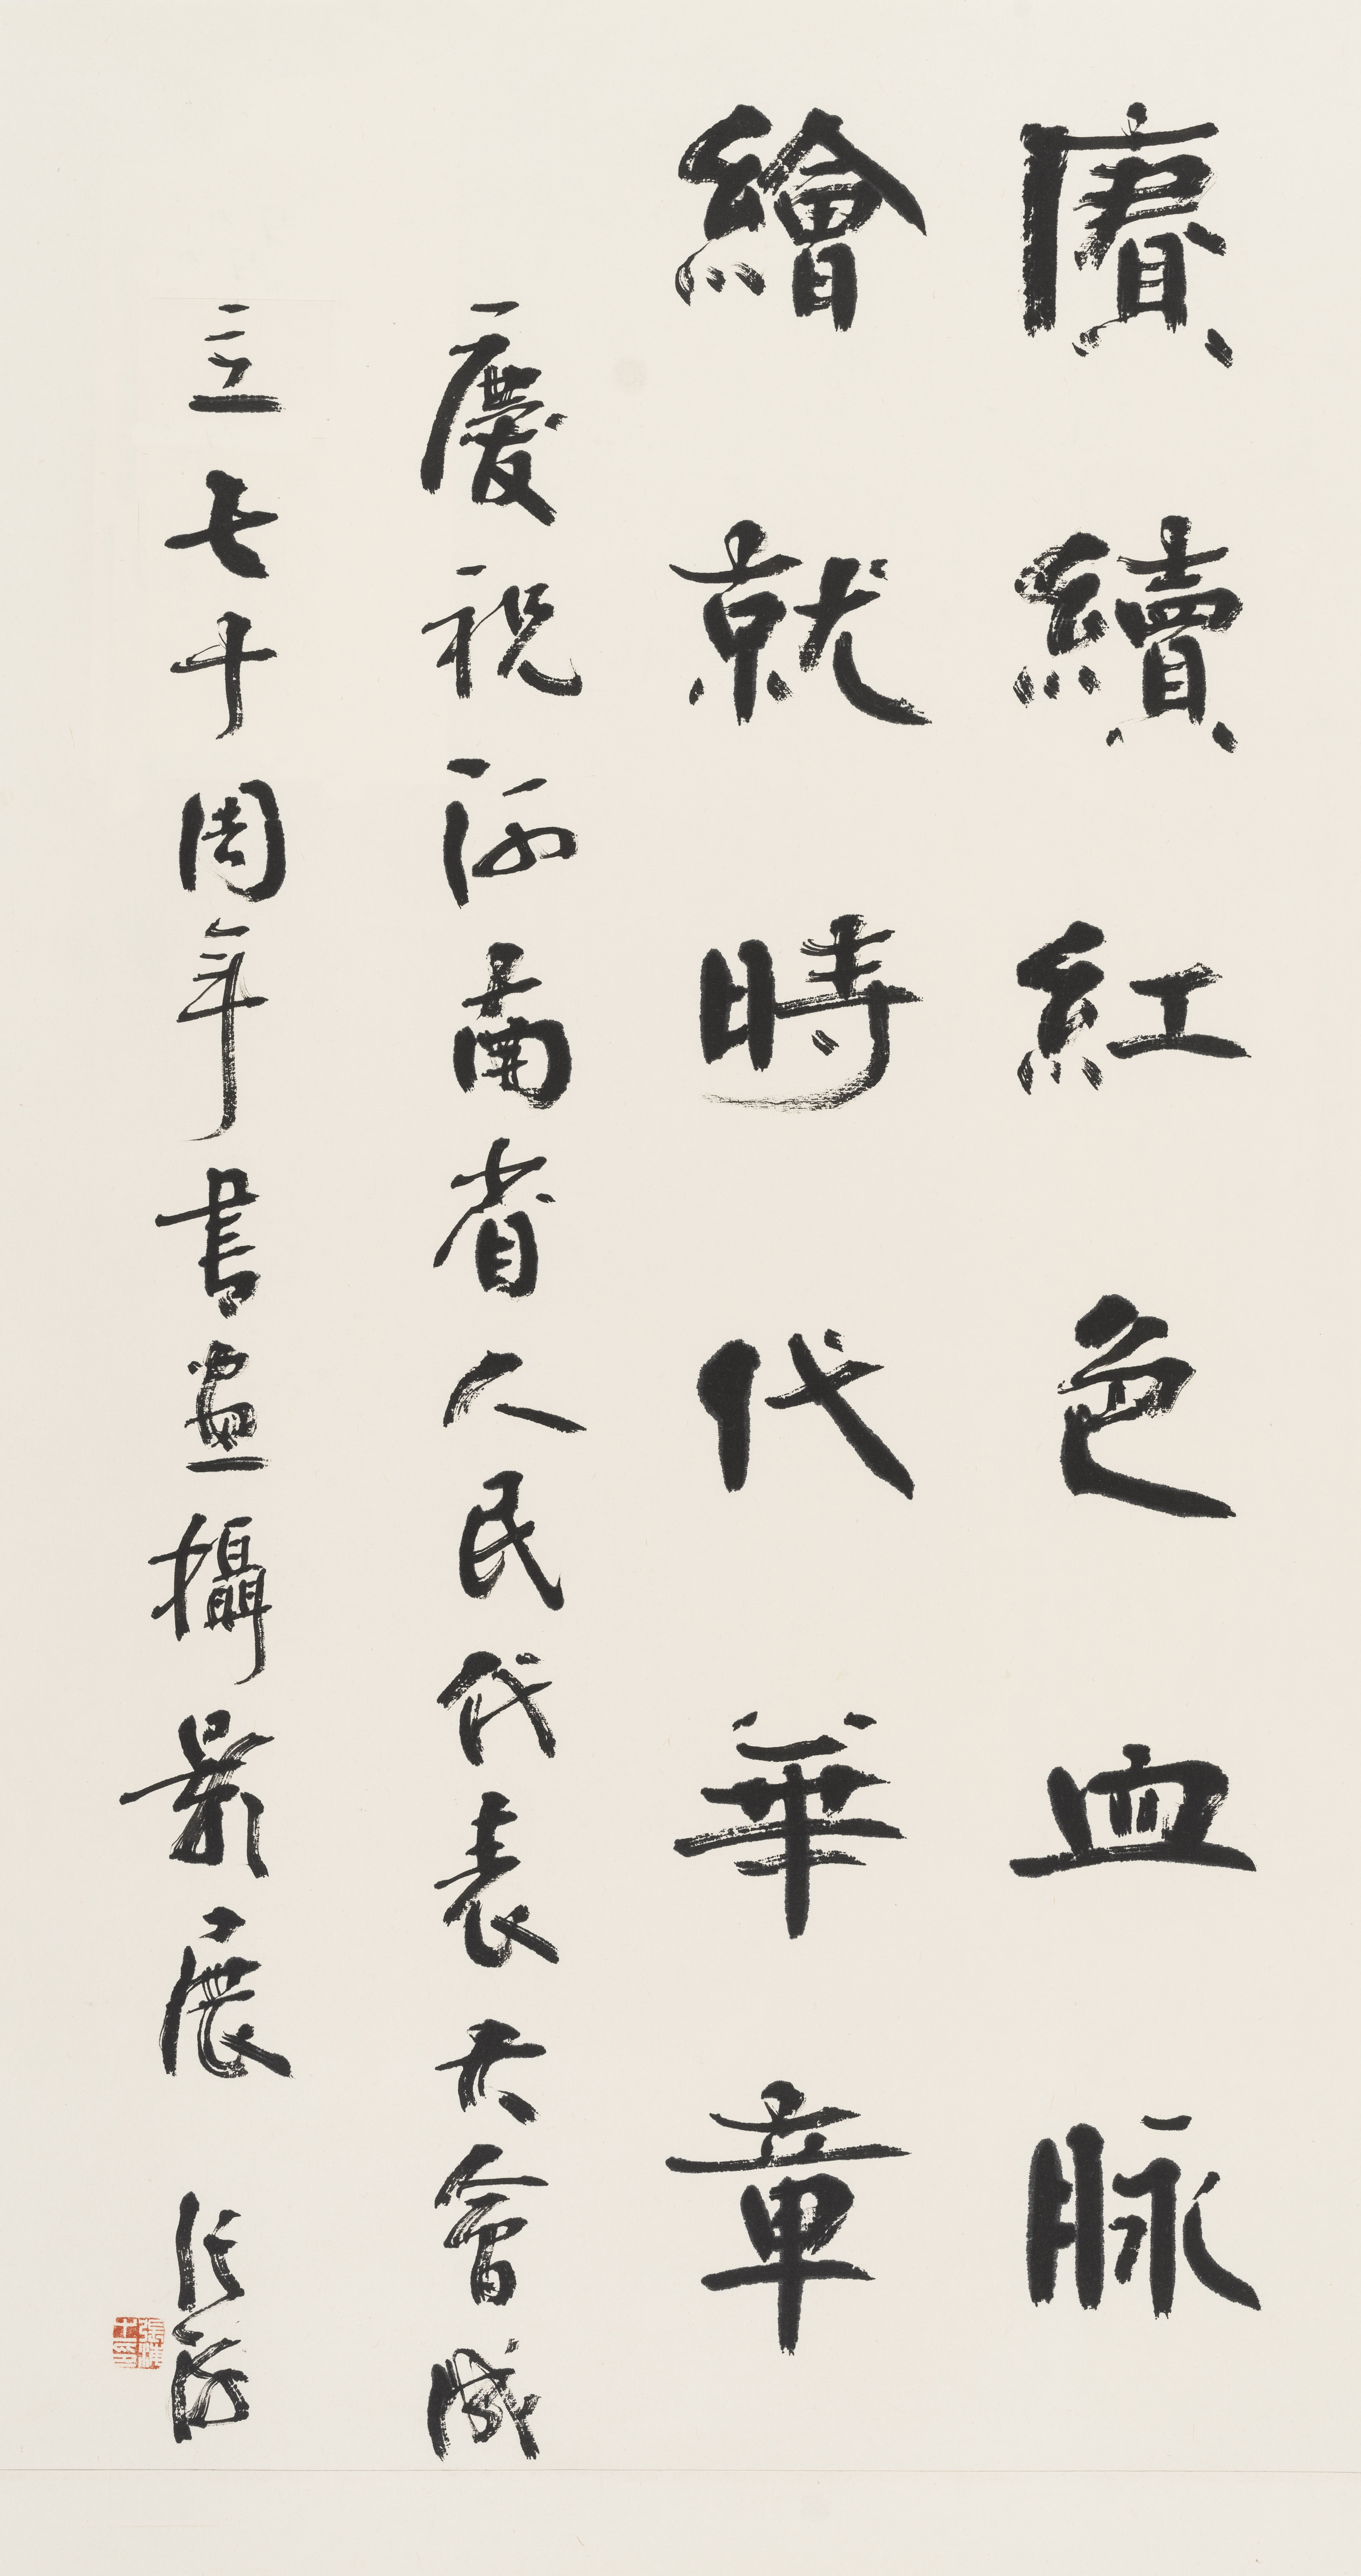 賡續紅色血脉
繪就時代華章
慶祝河南省人民代表大會成
立七十周年書畫攝影展 張海